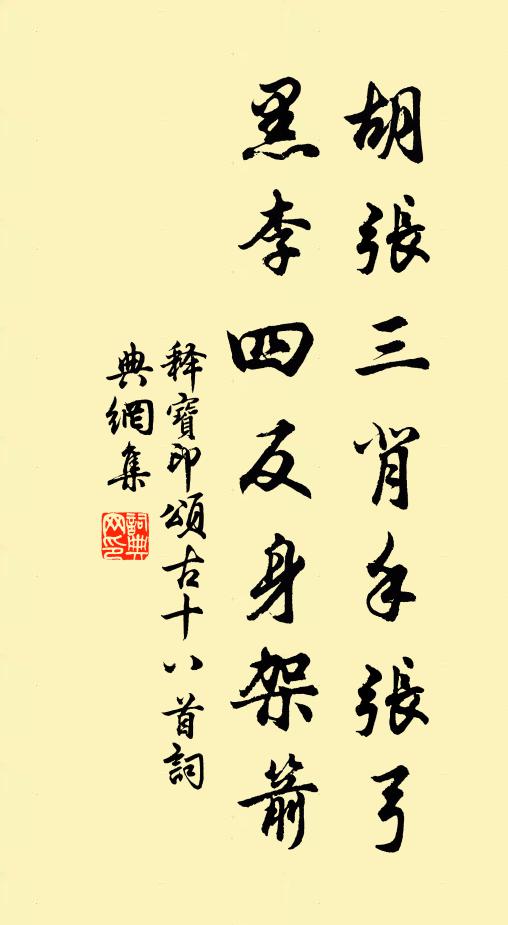 胡張三背手張弓
黑李四反身架箭
释寶印頌古十八首詞
典網集
詞典
网印